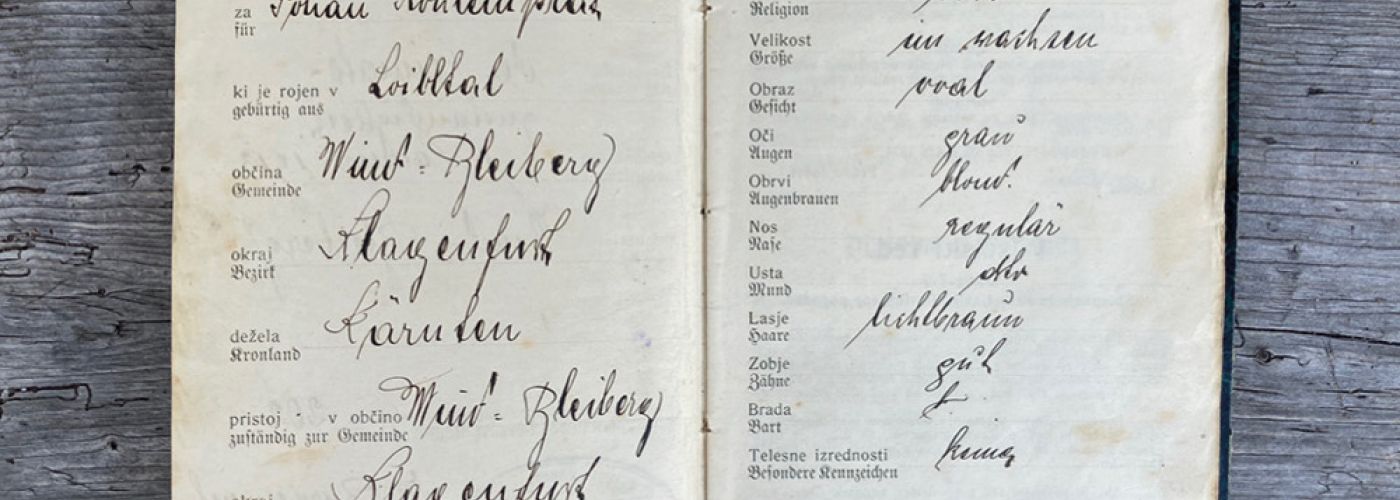 za
für Johan
ki je rojen v Loibltal
gebürtig aus
občina Wind = Bleiberg
Gemeinde
okraj Klagenfurt
Bezirk
dežela Kärnten
Kronland
pristoj - v občino Wind = Bleiberg
zuständig zur Gemeinde
okraj Klagenfurt
Religion
Velikost im wachsen
Größe
Obraz oval
Gesicht
Oči grau
Augen
Obrvi blond.
Augenbrauen
Nos regulär
Nase
Usta dto
Mund
Lasje lichtbraun
Haare
Zobje gut
Zähne
Brada
Bart
Telesne izrednosti keine
Besondere Kennzeichen